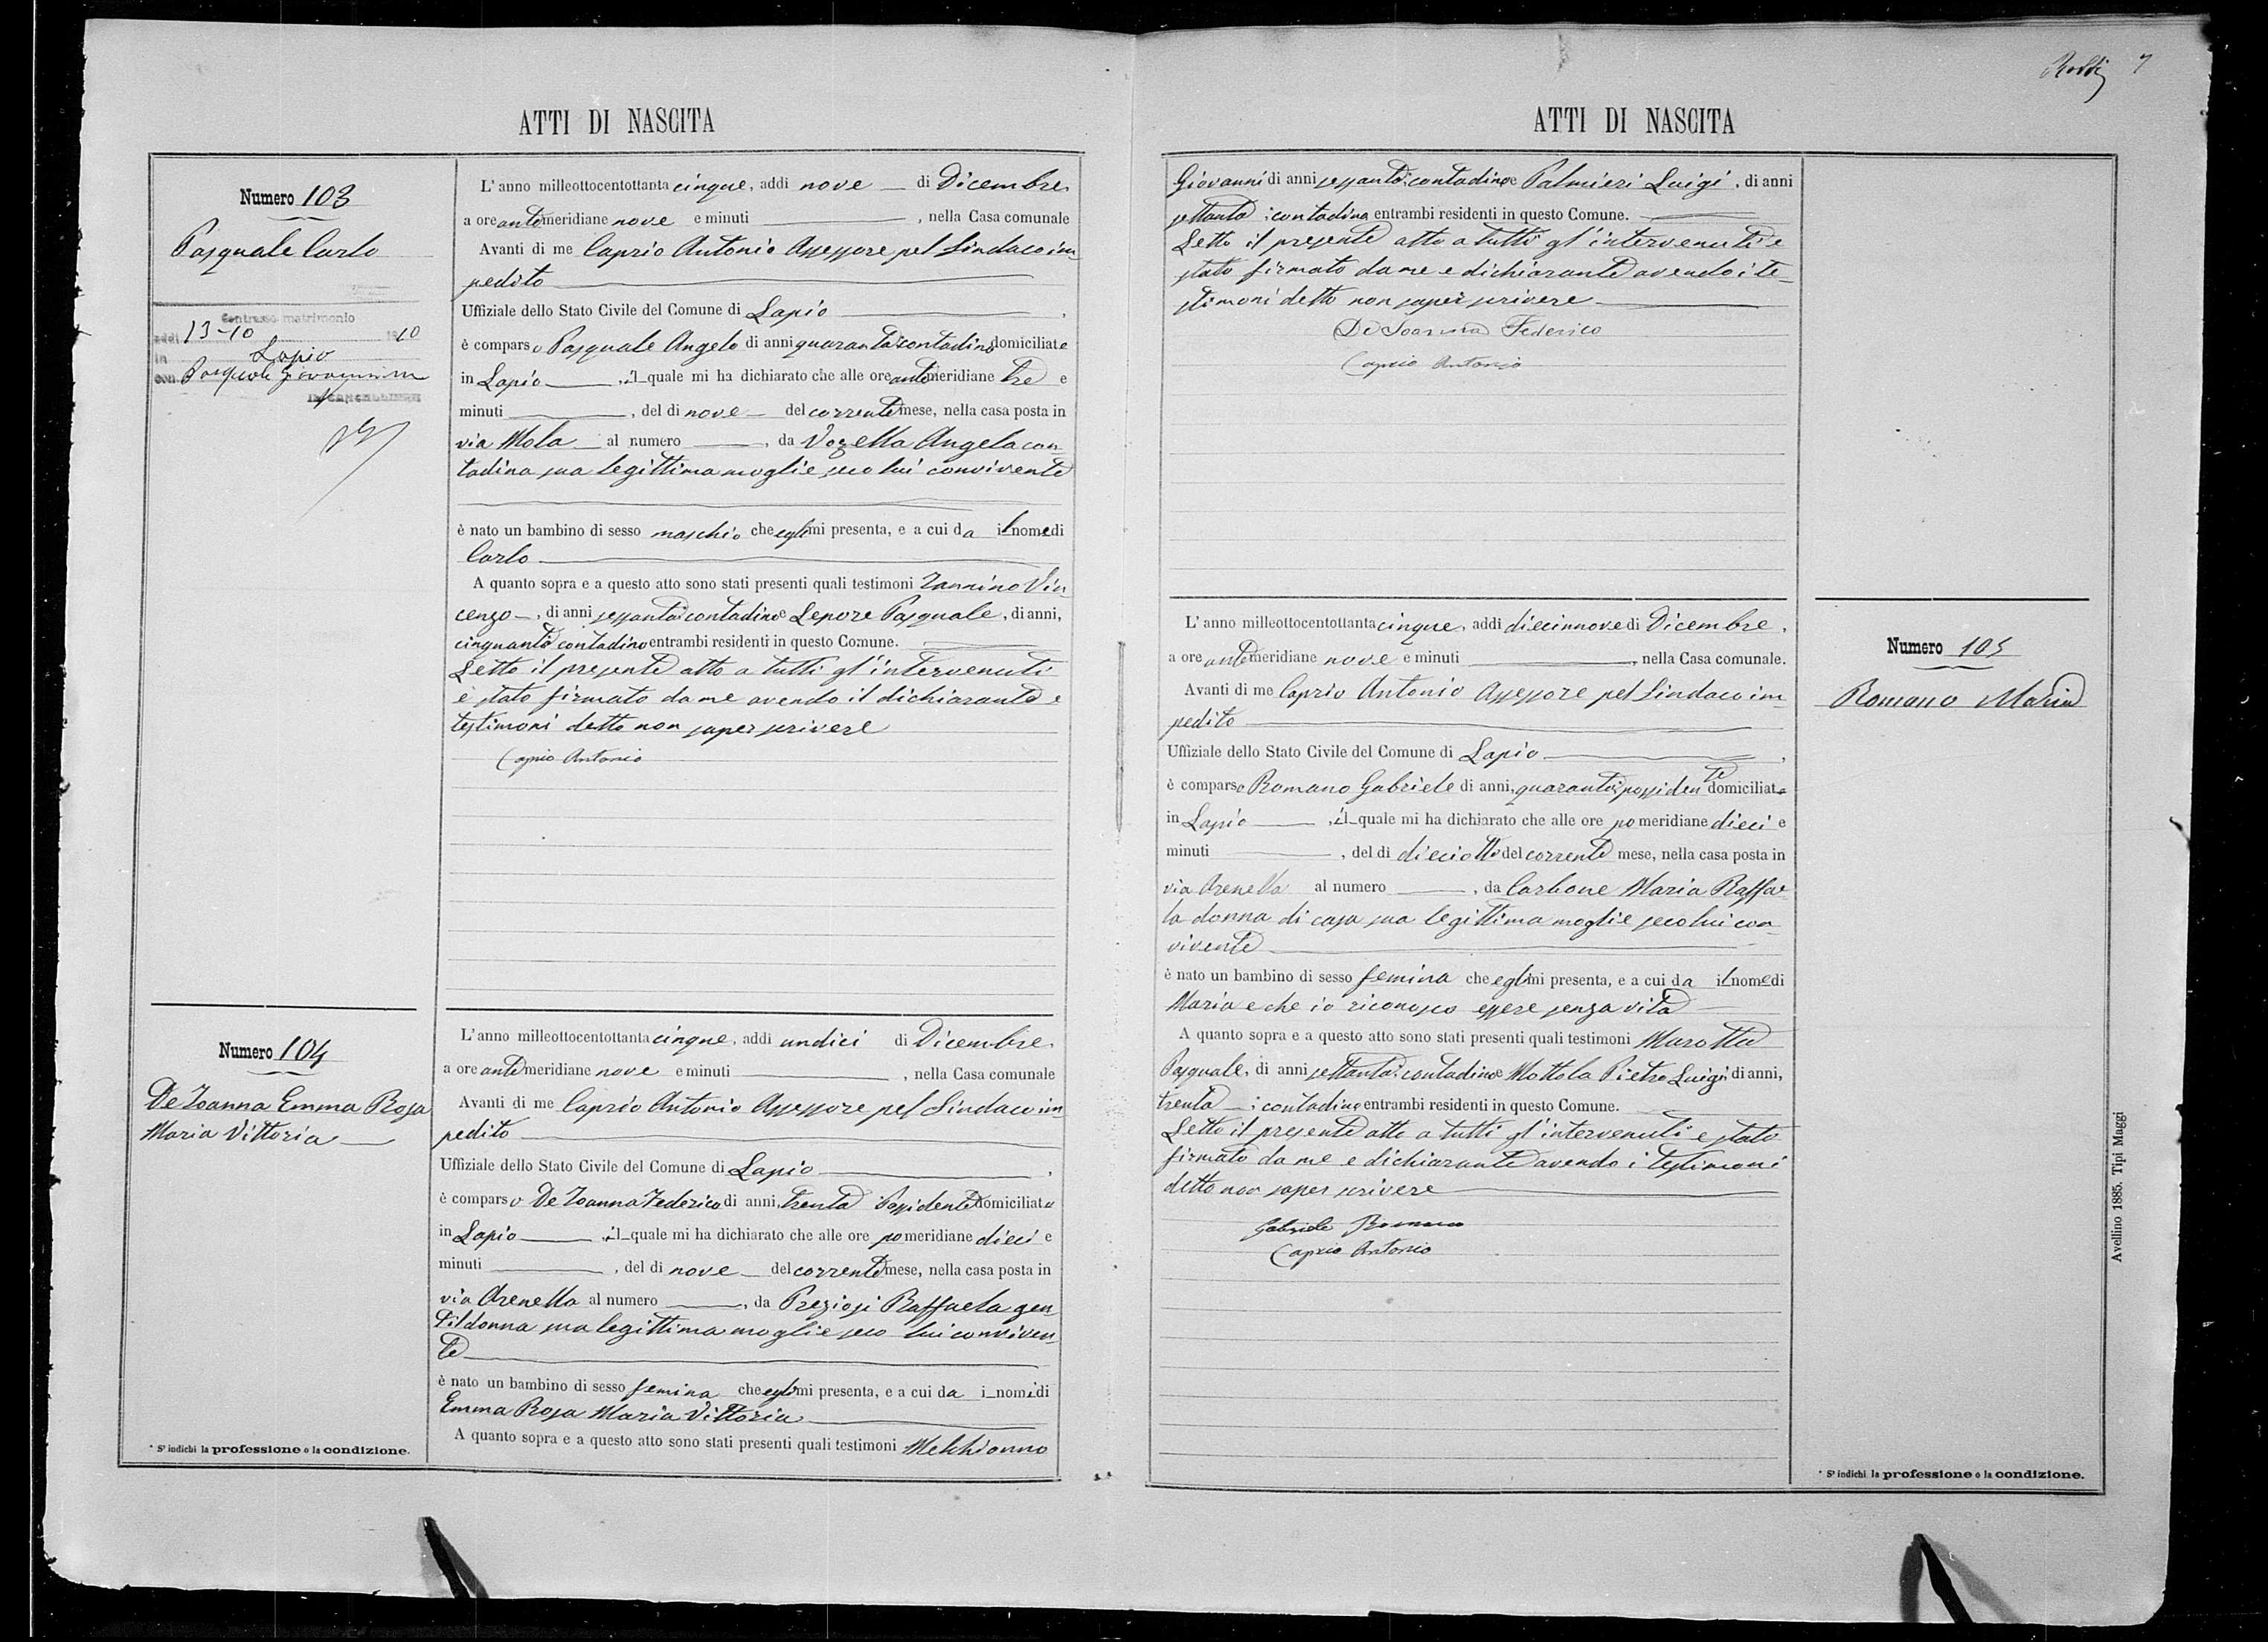 Rossi 7
ATTI DI NASCITA
Numero 103
Pasquale Carlo
Contrasse matrimonio
addì 13-10 1910
in Lapio
con Pasquale Giovannina
L'anno milleottocentottanta cinque, addi nove di Dicembre
a ore antimeridiane nove e minuti , nella Casa comunale
Avanti di me Caprio Antonio Assessore pel Sindaco im
pedito
Uffiziale dello Stato Civile del Comune di Lapio ,
è comparso Pasquale Angelo di anni quaranta contadino domiciliato
in Lapio , il quale mi ha dichiarato che alle ore antimeridiane tre e
minuti , del dì nove del corrente mese, nella casa posta in
via Mola al numero , da Vozella Angela con
tadina sua legittima moglie, seco lui convivente
è nato un bambino di sesso maschio che egli mi presenta, e a cui da il nome di
Carlo
A quanto sopra e a questo atto sono stati presenti quali testimoni Zannino Vin
cenzo , di anni sessanta contadino e Lepore Pasquale, di anni,
cinquanta contadino entrambi residenti in questo Comune.
Letto il presente atto a tutti gl'intervenuti
è stato firmato da me avendo il dichiarante e
testimoni detto non saper scrivere
Caprio Antonio
Numero 104
De Ioanna Emma Rosa
Maria Vittoria
L'anno milleottocentottanta cinque, addi undici di Dicembre,
a ore antimeridiane nove e minuti , nella Casa comunale
Avanti di me Caprio Antonio Assessore pel Sindaco im
pedito
Uffiziale dello Stato Civile del Comune di Lapio ,
è comparso De Ioanna Federico di anni, trenta Possidente domiciliato
in Lapio , il quale mi ha dichiarato che alle ore pomeridiane dieci e
minuti , del dì nove del corrente mese, nella casa posta in
via Arenella al numero , da Preziosi Raffaela gen
tildonna sua legittima moglie seco lui conviven
te
è nato un bambino di sesso femina che egli mi presenta, e a cui da i nomi di
Emma Rosa Maria Vittoria
A quanto sopra e a questo atto sono stati presenti quali testimoni Melchionno
* Si indichi la professione o la condizione.
ATTI DI NASCITA
Giovanni di anni sessanta contadino e Palmieri Luigi, di anni
settanta contadino entrambi residenti in questo Comune.
Letto il presente atto a tutti gl'intervenuti è
stato firmato da me e dichiarante avendo i te
stimoni detto non saper scrivere
De Ioanna Federico
Caprio Antonio
Numero 105
Romano Maria
L'anno milleottocentottanta cinque, addi diecinnove di Dicembre,
a ore antimeridiane nove e minuti , nella Casa comunale.
Avanti di me Caprio Antonio Assessore pel Sindaco im
pedito
Uffiziale dello Stato Civile del Comune di Lapio ,
è comparso Romano Gabriele di anni, quaranta possidente domiciliato
in Lapio , il quale mi ha dichiarato che alle ore pomeridiane dieci e
minuti , del dì dieciotto del corrente mese, nella casa posta in
via Arenella al numero , da Carbone Maria Raffae
la donna di casa sua legittima moglie seco lui con
vivente
è nato un bambino di sesso femina che egli mi presenta, e a cui da il nome di
Maria e che io riconosco essere senza vita
A quanto sopra e a questo atto sono stati presenti quali testimoni Marotta
Pasquale, di anni settanta contadino e Mottola Pietro Luigi di anni,
trenta contadino entrambi residenti in questo Comune.
Letto il presente atto a tutti gl'intervenuti e stato
firmato da me e dichiarante avendo i testimoni
detto non saper scrivere
Gabriele Romano
Caprio Antonio
* Si indichi la professione o la condizione.
Avellino 1885. Tipi Maggi